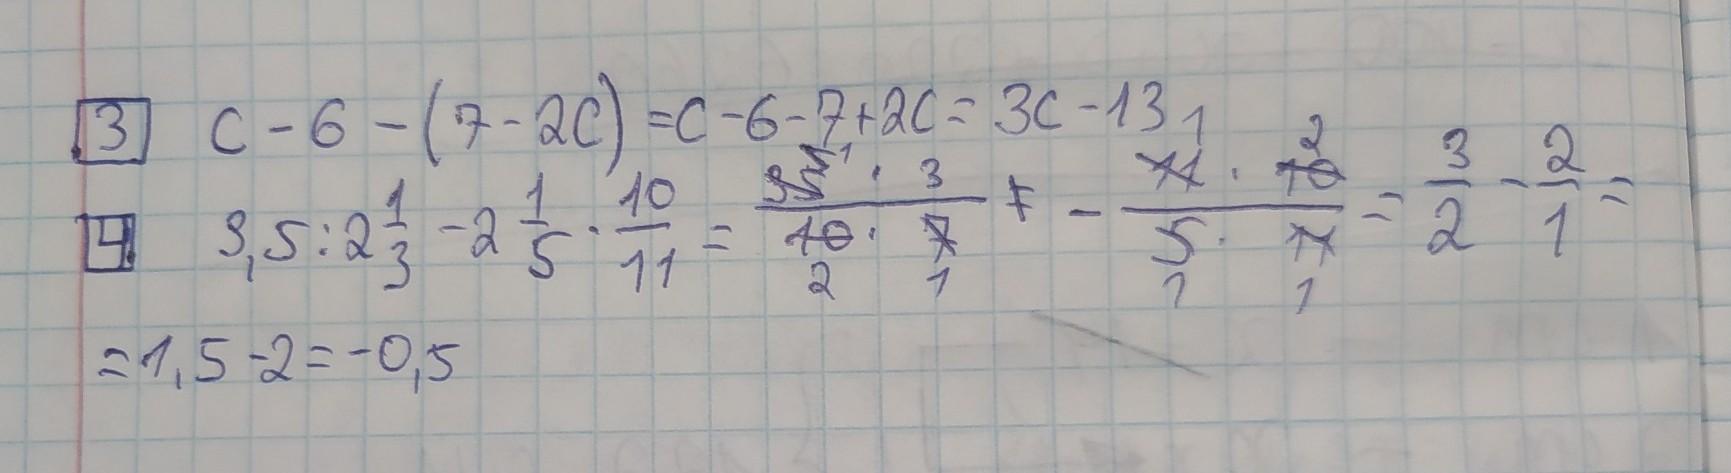 3 c - 6 - (7 - 2c) = c - 6 - 7 + 2c = 3c - 13
4 3,5 : 2 1/3 - 2 1/5 · 10/11 = (35 5 1 · 3)/(10 2 · 7 1) + - (11 1 · 10 2)/(5 1 · 11 1) = 3/2 - 2/1 =
= 1,5 - 2 = -0,5